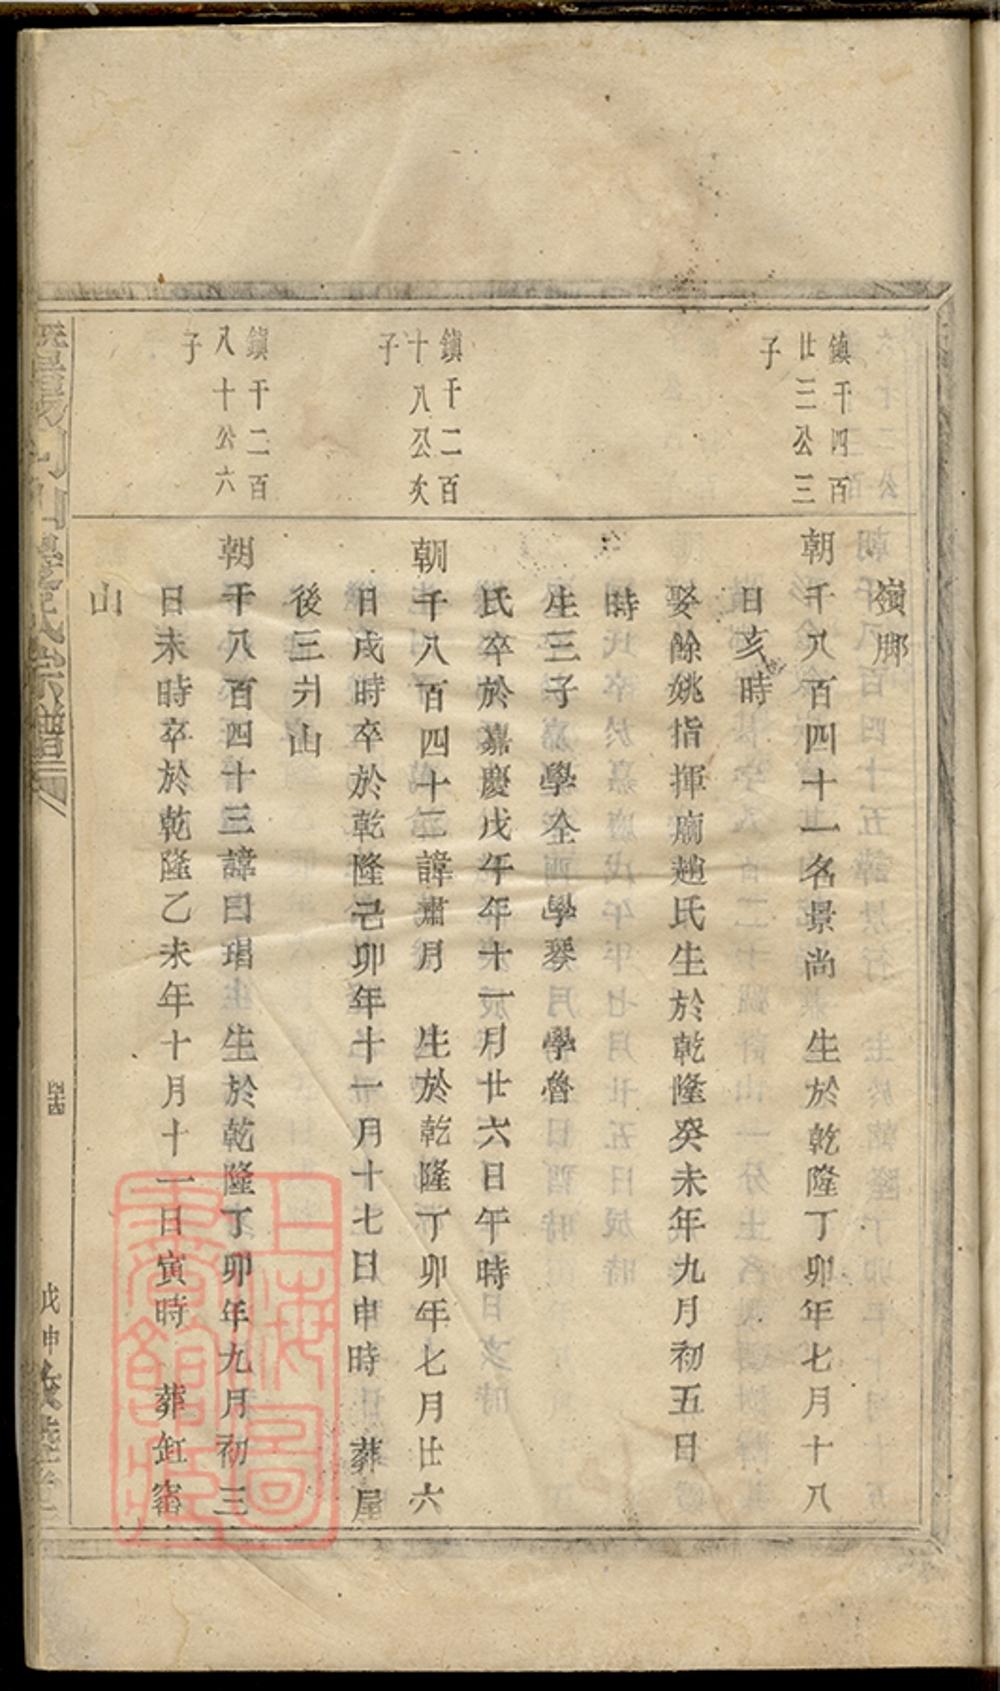 嶺脚
鎮千四百
廿三公三
子
朝千八百四十一名景尚　生於乾隆丁卯年七月十八
日亥時
娶餘姚指揮廟趙氏生於乾隆癸未年九月初五日
時
生三子　學全　學琴　學魯
氏卒於嘉慶戊午年十一月廿六日午時
鎮千二百
十八公次
子
朝千八百四十二諱肅月　生於乾隆丁卯年七月廿六
日戌時卒於乾隆己卯年十一月十七日申時　葬屋
後三爿山
鎮千二百
八十公六
子
朝千八百四十三諱曰琩　生於乾隆丁卯年九月初三
日未時卒於乾隆乙未年十月十一日寅時　葬缸窰
山
氏宗譜
戊申
上海圖
書館藏